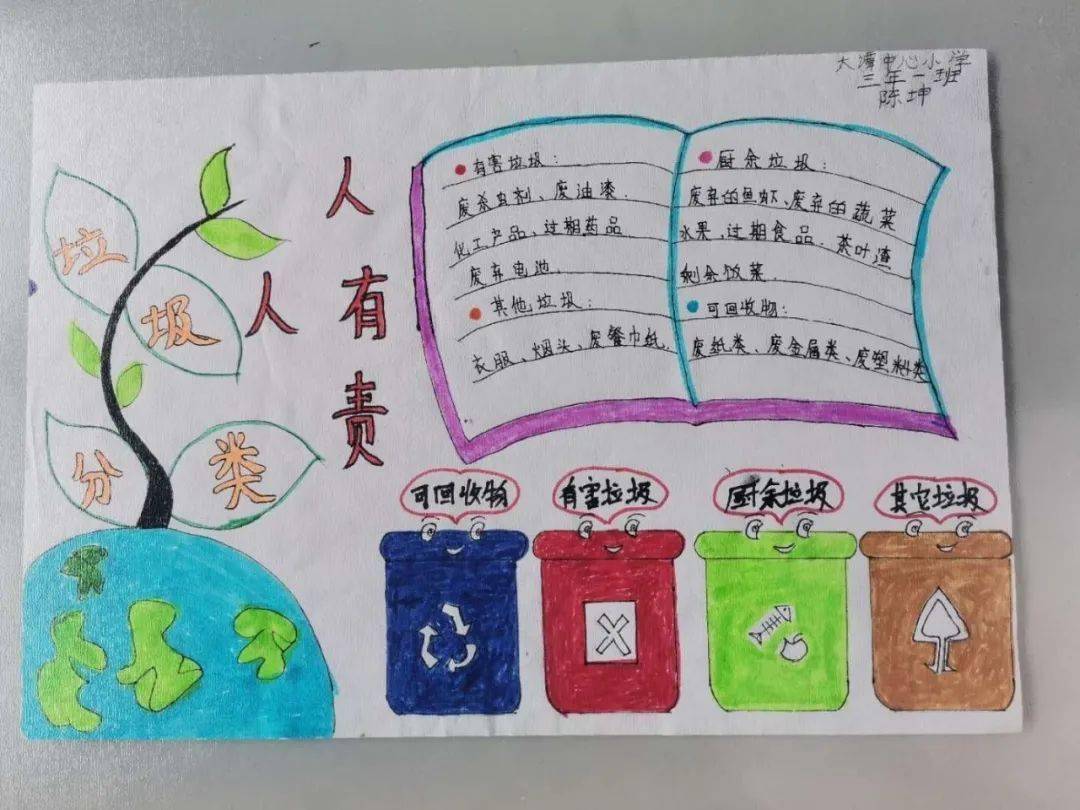 大潭中心小学
三年一班
陈坤
垃
圾
分
类
人
人
有
责
有害垃圾：
废杀虫剂、废油漆.
化工产品、过期药品
废弃电池.
其他垃圾：
衣服、烟头、废餐巾纸.
厨余垃圾：
废弃的鱼虾、废弃的蔬菜
水果.过期食品.茶叶渣
剩余饭菜.
可回收物：
废纸类、废金属类、废塑料类
可回收物
有害垃圾
厨余垃圾
其它垃圾